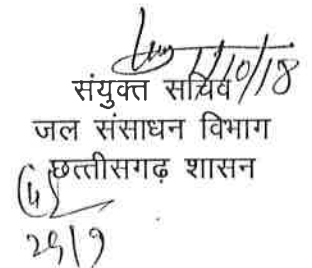 1/10/18
संयुक्त सचिव
जल संसाधन विभाग
छत्तीसगढ़ शासन
29/9